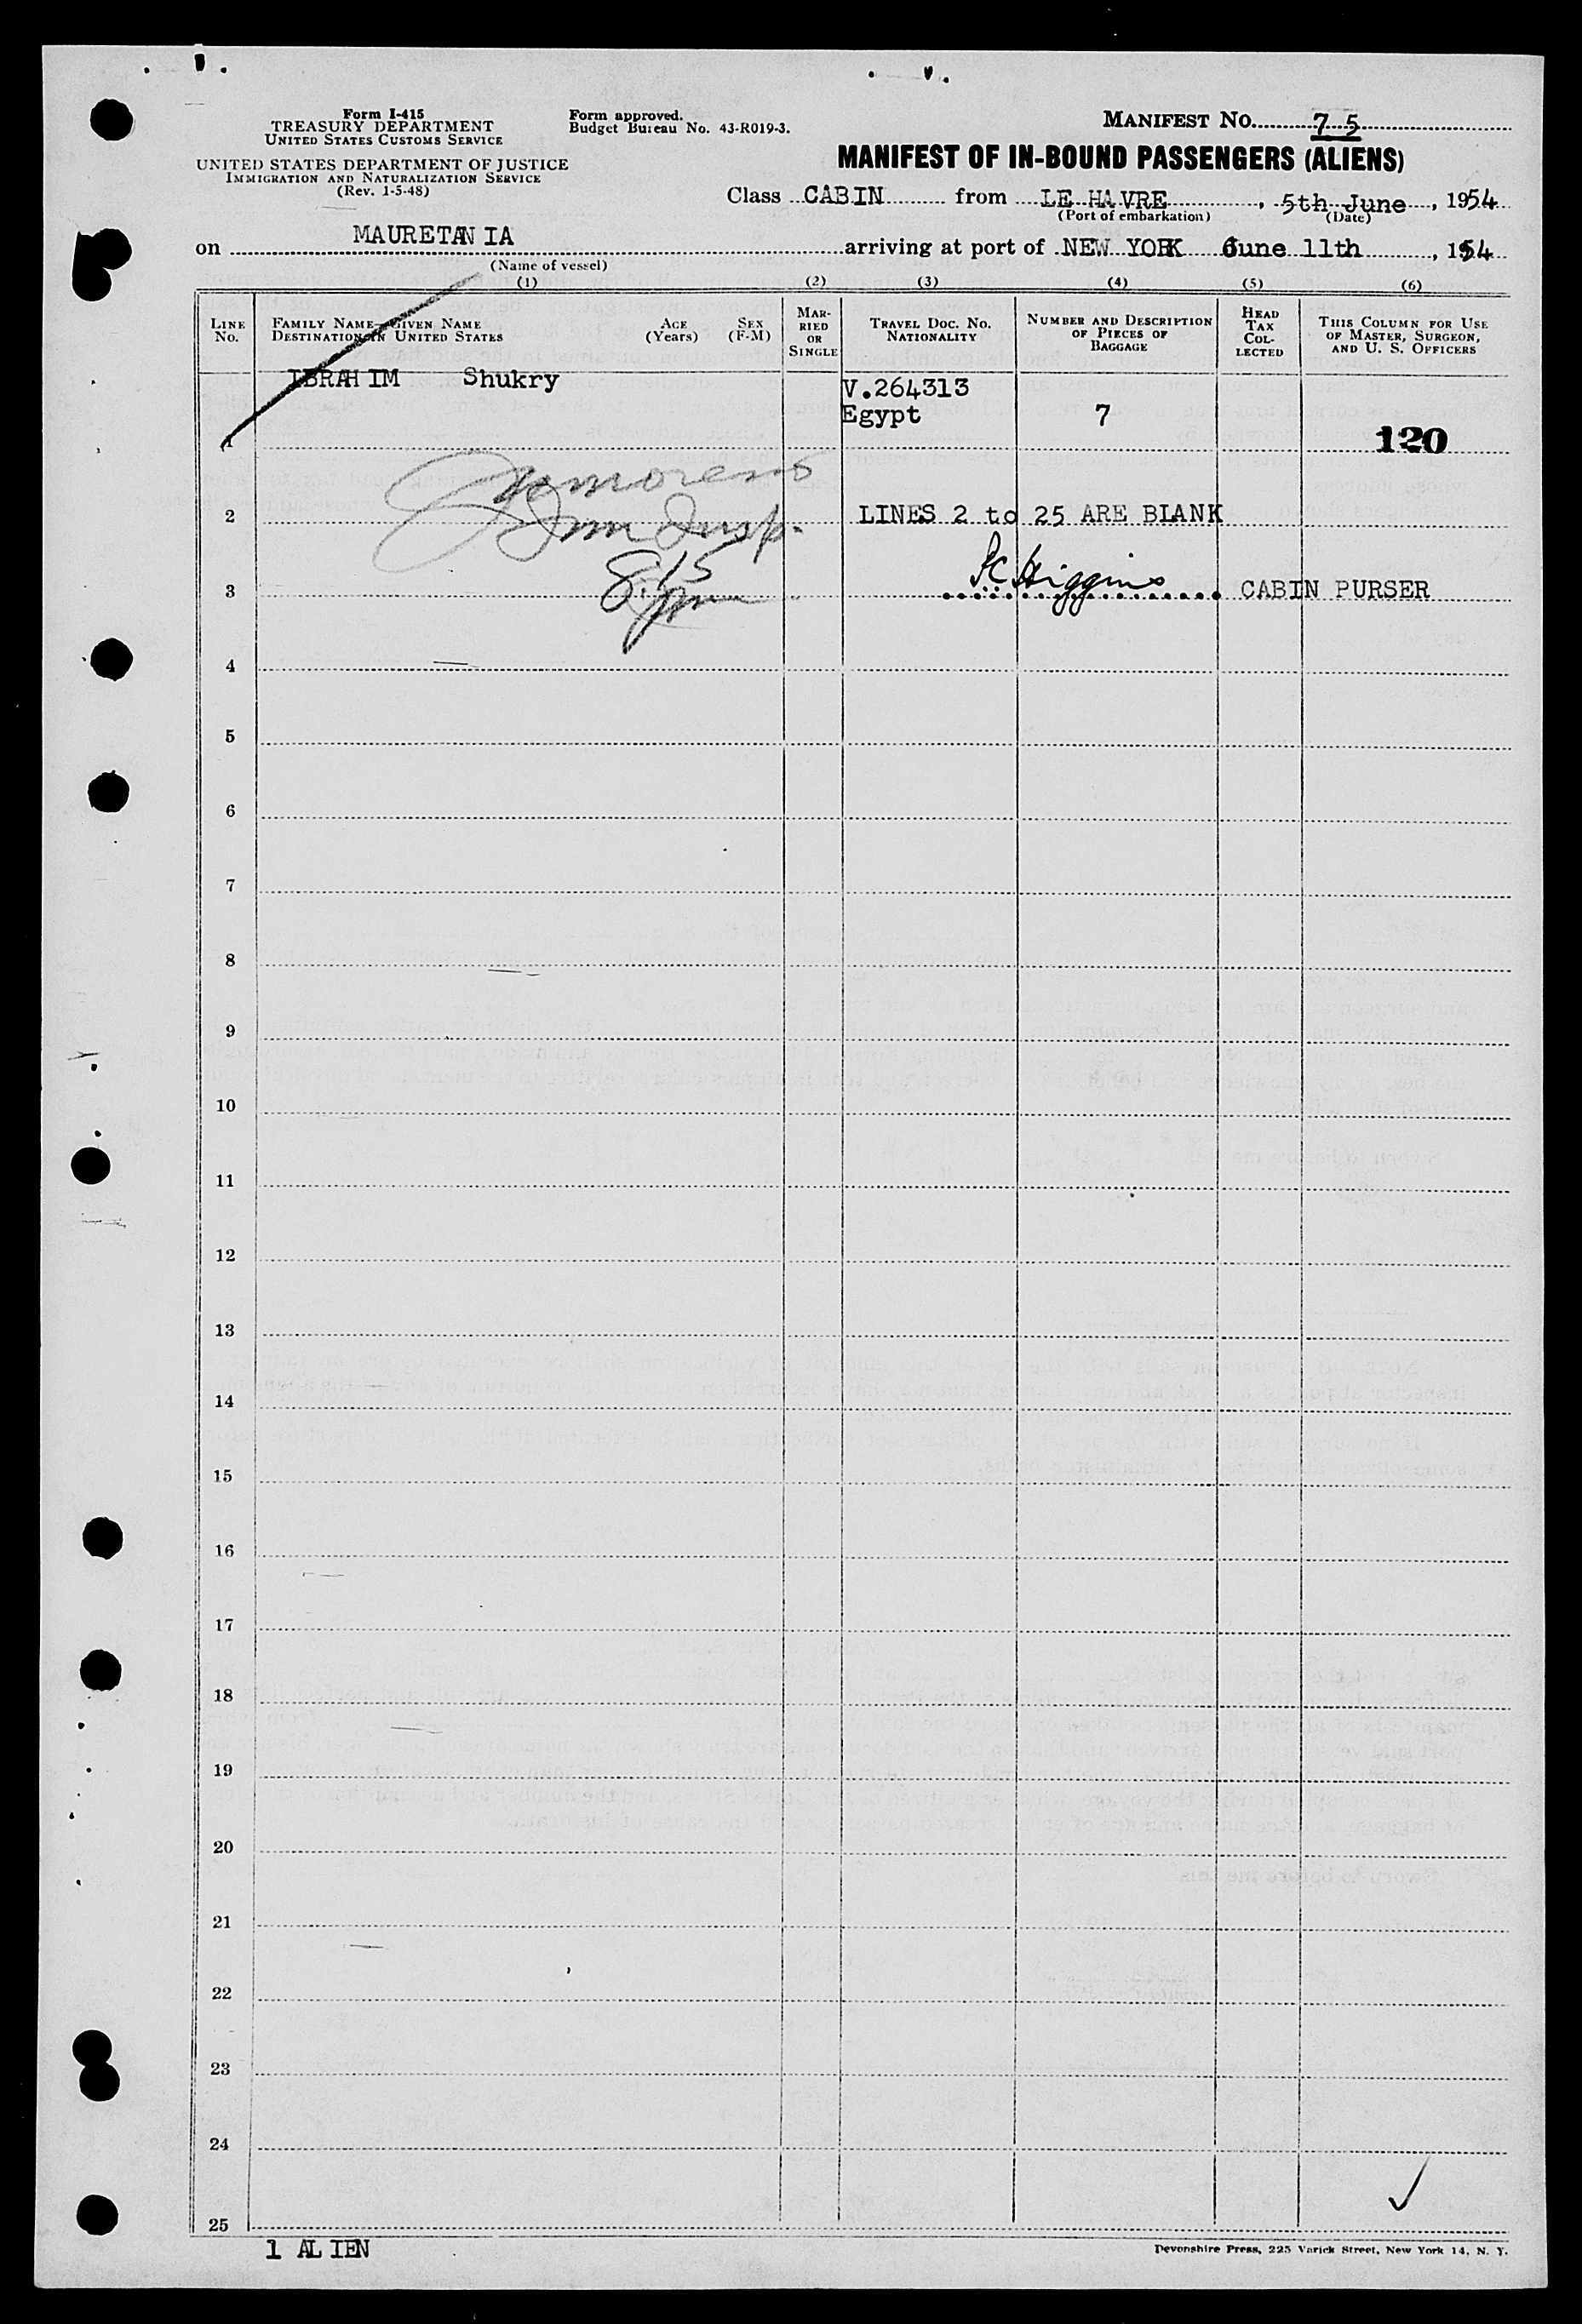 Form I-415
TREASURY DEPARTMENT
UNITED STATES CUSTOMS SERVICE
UNITED STATES DEPARTMENT OF JUSTICE
IMMIGRATION AND NATURALIZATION SERVICE
(Rev. 1-5-48)
Form approved.
Budget Bureau No. 43-R019-3.
MANIFEST NO. 75
MANIFEST OF IN-BOUND PASSENGERS (ALIENS)
Class CABIN from LE HAVRE, 5th June, 1954
(Port of embarkation) (Date)
on MAURETANIA arriving at port of NEW YORK June 11th, 1954
(Name of vessel)
(1) (2) (3) (4) (5) (6)
LINE No.
FAMILY NAME—GIVEN NAME
DESTINATION IN UNITED STATES
AGE (Years)
SEX (F-M)
MARRIED OR SINGLE
TRAVEL DOC. NO.
NATIONALITY
NUMBER AND DESCRIPTION OF PIECES OF BAGGAGE
HEAD TAX COLLECTED
THIS COLUMN FOR USE OF MASTER, SURGEON, AND U. S. OFFICERS
IBRAHIM Shukry V.264313
Egypt 7
1 120
2 LINES 2 to 25 ARE BLANK
Imm Insp.
8:15 pm
3 Higgins CABIN PURSER
4
5
6
7
8
9
10
11
12
13
14
15
16
17
18
19
20
21
22
23
24
25
1 ALIEN
Devonshire Press, 225 Varick Street, New York 14, N. Y.